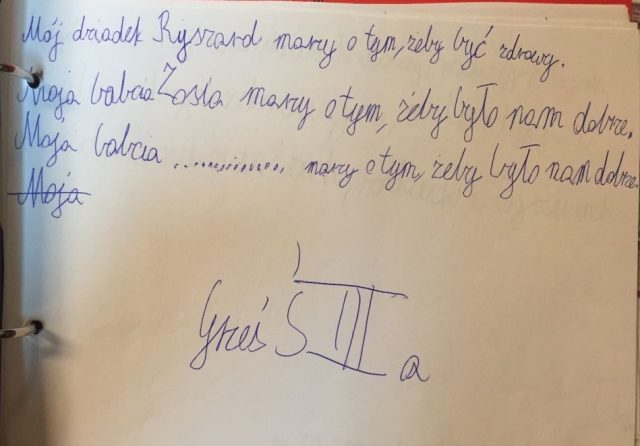 Mój dziadek Ryszard marzy o tym, żeby być zdrowy.
Moja babcia Zosia marzy o tym, żeby było nam dobrze.
Moja babcia ................. marzy o tym, żeby było nam dobrze.
Moja
Grześ Ś III a